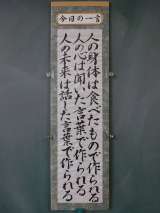 今日の一言
人の身体は食べたもので作られる
人の心は聞いた言葉で作られる
人の未来は話した言葉で作られる